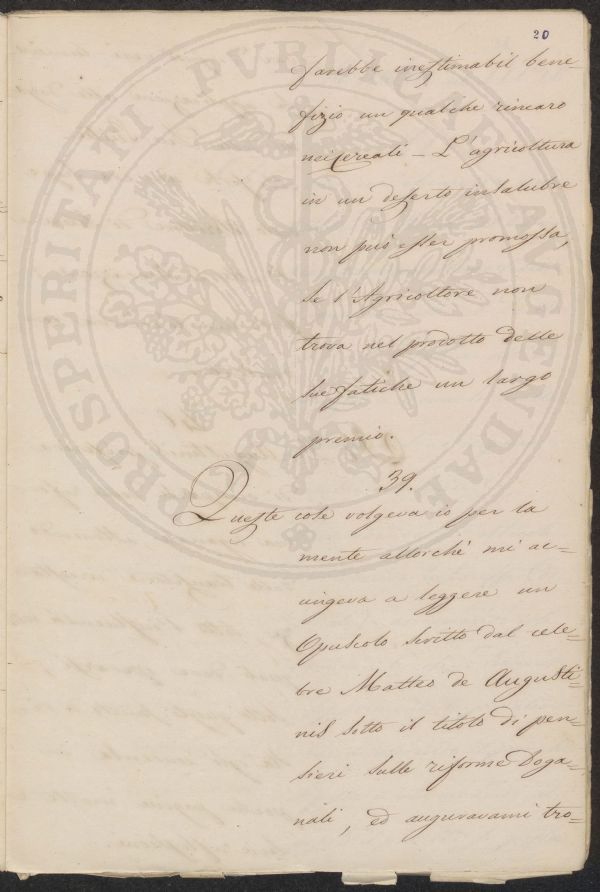 20
sarebbe inestimabil bene-
fizio un qualche rincaro
nei Cereali - L'agricoltura
in un deserto insalubre
non può esser promossa,
se l'Agricoltore non
trova nel prodotto delle
sue fatiche un largo
premio.
39.
Queste cose volgeva io per la
mente allorché mi ac-
cingeva a leggere un
Opuscolo scritto dal cele-
bre Matteo de Augusti-
nis sotto il titolo di pen-
sieri sulle riforme Doga-
nali, ed auguravami tro-
PROSPERITATI PVBLICAE AVGENDAE